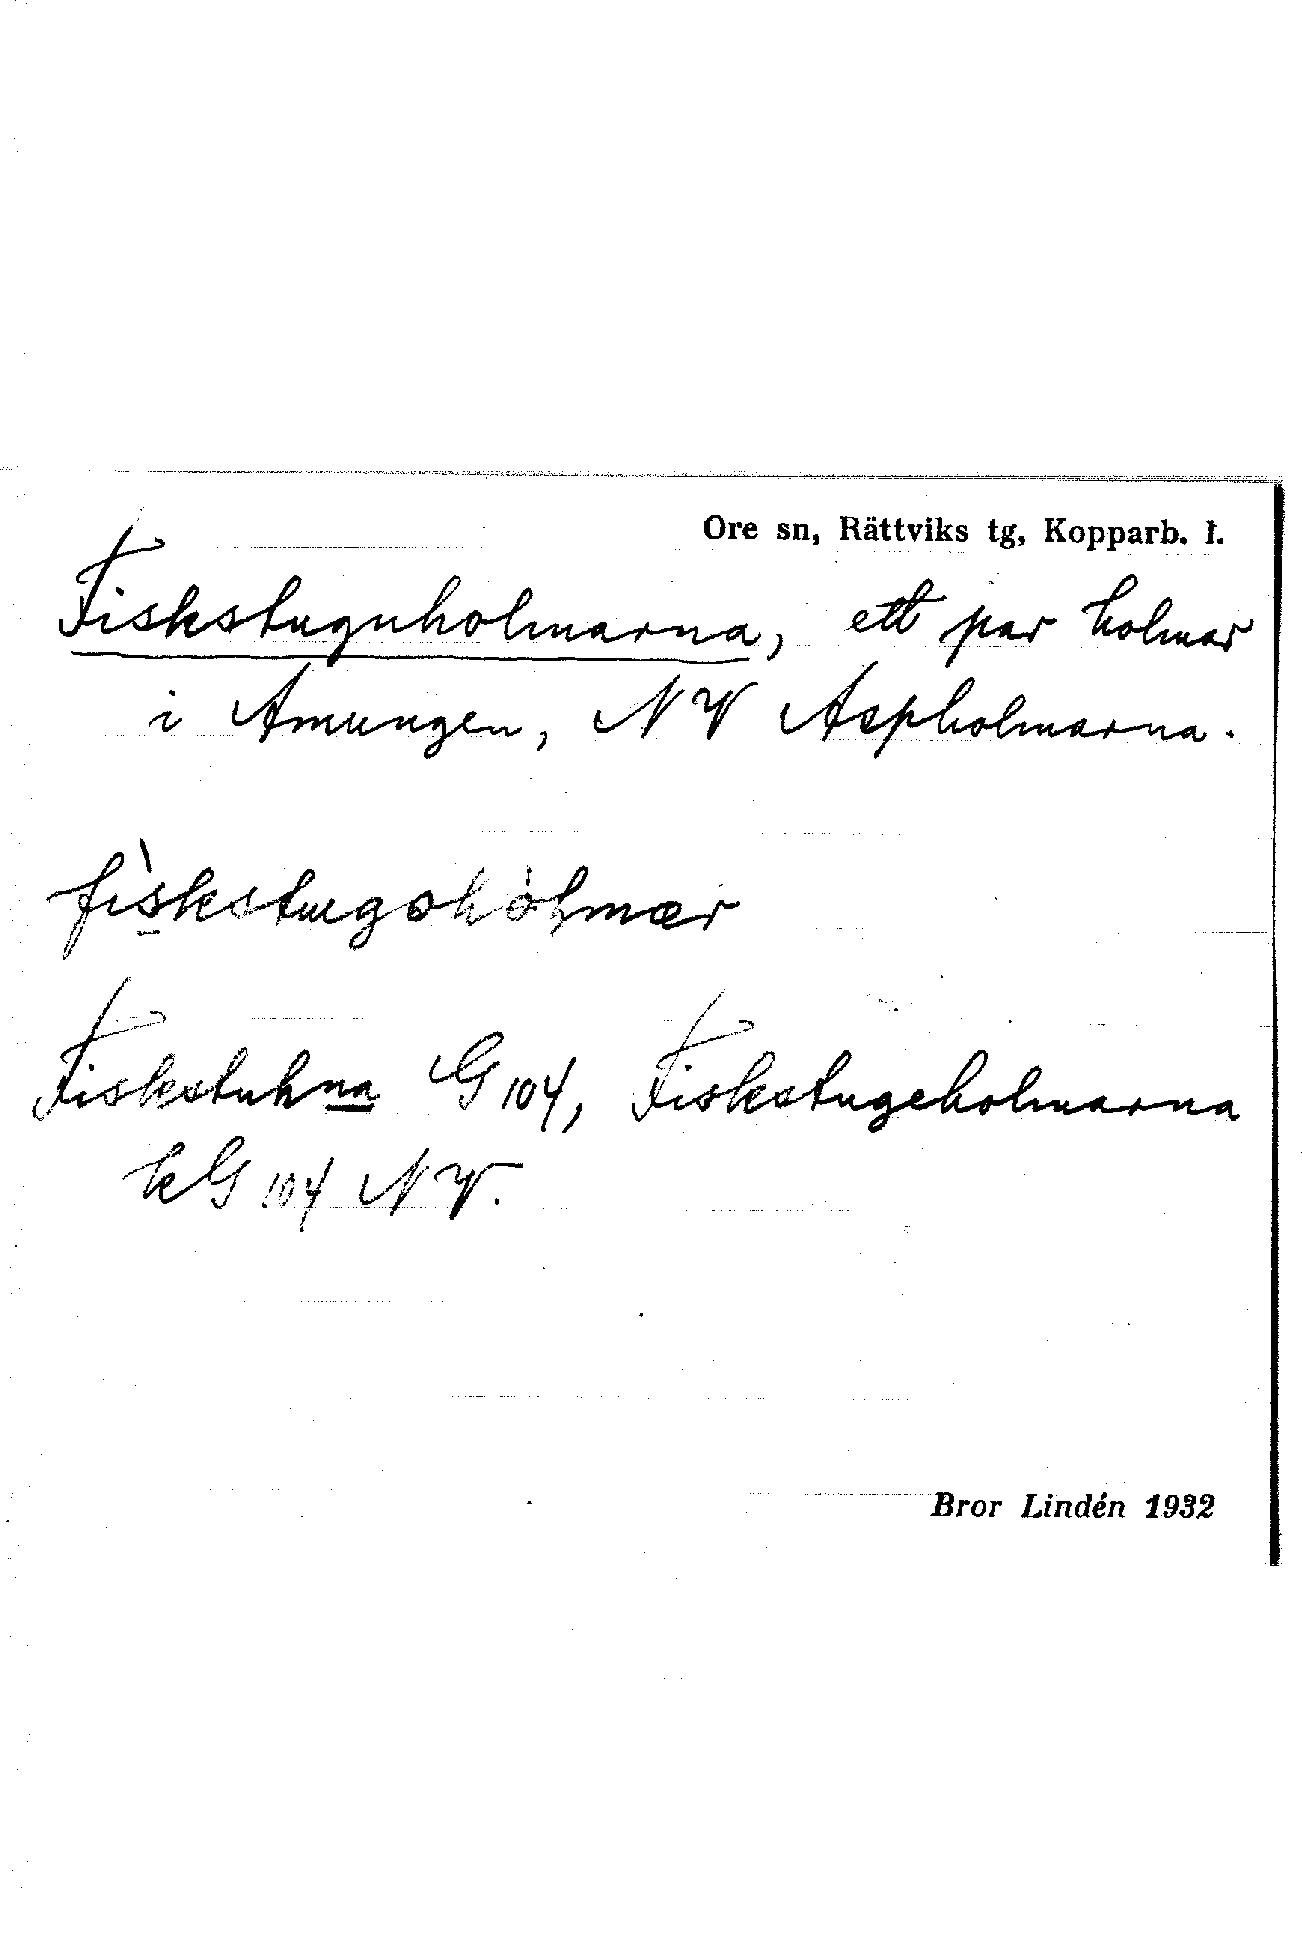 Ore sn, Rättviks tg, Kopparb. l.
Fiskstuguholmarna, ett par holmar
i Amungen, NV Aspholmarna.
fìskstugohòlmær
Fiskstuhna G 104, Fiskstugeholmarna
kG 104 NV.
Bror Lindén 1932